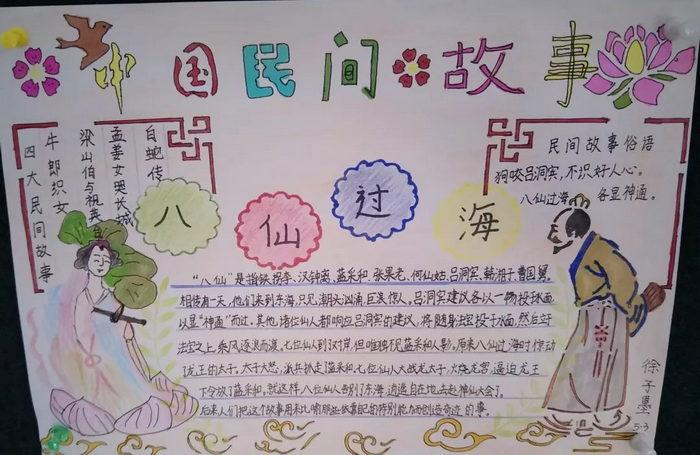 中国民间故事
四大民间故事
牛郎织女
梁山伯与祝英台
孟姜女哭长城
白蛇传
民间故事俗语
狗咬吕洞宾,不识好人心。
八仙过海,各显神通。
八仙过海
“八仙”是指铁拐李、汉钟离、蓝采和、张果老、何仙姑、吕洞宾、韩湘子、曹国舅。
相传有一天,他们来到东海,只见潮天汹涌,巨浪惊人。吕洞宾建议各以一物投于水面,
以显“神通”而过。其他诸位仙人都响应吕洞宾的建议,将随身法宝投于水面,然后立于
法宝之上,乘风逐浪而渡。七位仙人到对岸,但唯独不见蓝采和人影。原来八仙过海时惊动
龙王的太子,太子大怒,派兵抓走了蓝采和。七位仙人大战龙太子,火烧龙宫,逼迫龙王
下令放了蓝采和。就这样,八位仙人告别了东海,逍遥自在地去赴神仙大会了。
后来人们把这个故事用来比喻那些依靠自己的特别能力而创造奇迹的事。
徐子墨
5.3